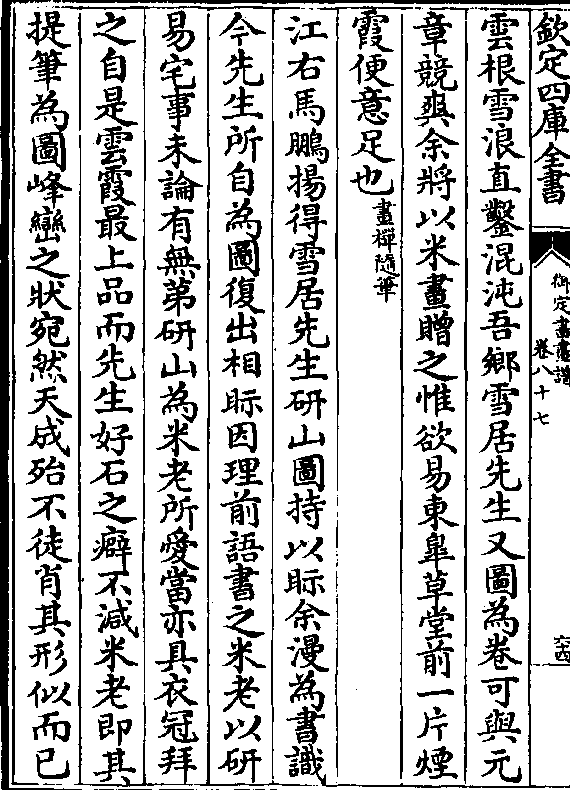 欽定四庫全書
御定書畫譜
卷八十七
六四
雲根雪浪直鑿混沌吾鄉雪居先生又圖為卷可與元
章競爽余將以米畫贈之惟欲易東臯草堂前一片煙
霞便意足也畫禪隨筆
江右馬鵬揚得雪居先生研山圖持以眎余漫為書識
今先生所自為圖復出相眎因理前語書之米老以研
易宅事未論有無第研山為米老所愛當亦具衣冠拜
之自是雲霞最上品而先生好石之癖不減米老即其
提筆為圖峰巒之狀宛然天成殆不徒肖其形似而已